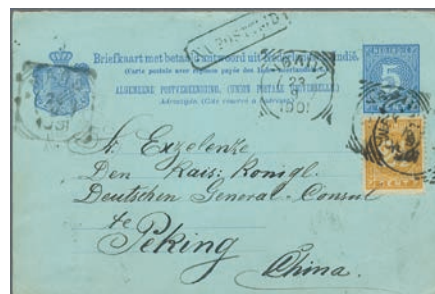 NA POSTTIJD
Briefkaart met betaald antwoord uit Nederlandsch-Indië.
(Carte postale avec réponse payée des Indes néerlandaises.)
ALGEMEENE POSTVEREENIGING. (UNION POSTALE UNIVERSELLE.)
Adreszijde. (Côté réservé à l'adresse.)
5
23
9
1901
CENT
Sr. Exzelenze
Den Kais: Königl.
Deutschen General-Consul
te
Peking
China.